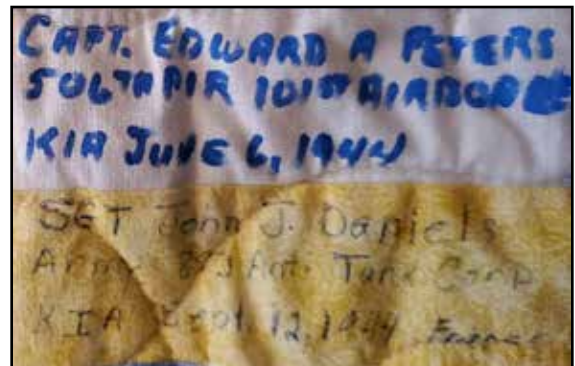 CAPT. EDWARD A PETERS
506TH PIR 101ST AIRBORNE
KIA JUNE 6, 1944
SGT John J. Daniels
Army Anti Tank Corp
KIA Sept. 12, 1944 France